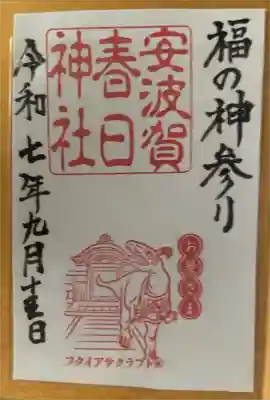 福の神参り
安波賀
春日
神社
令和七年九月十五日
フクイアサクラプト